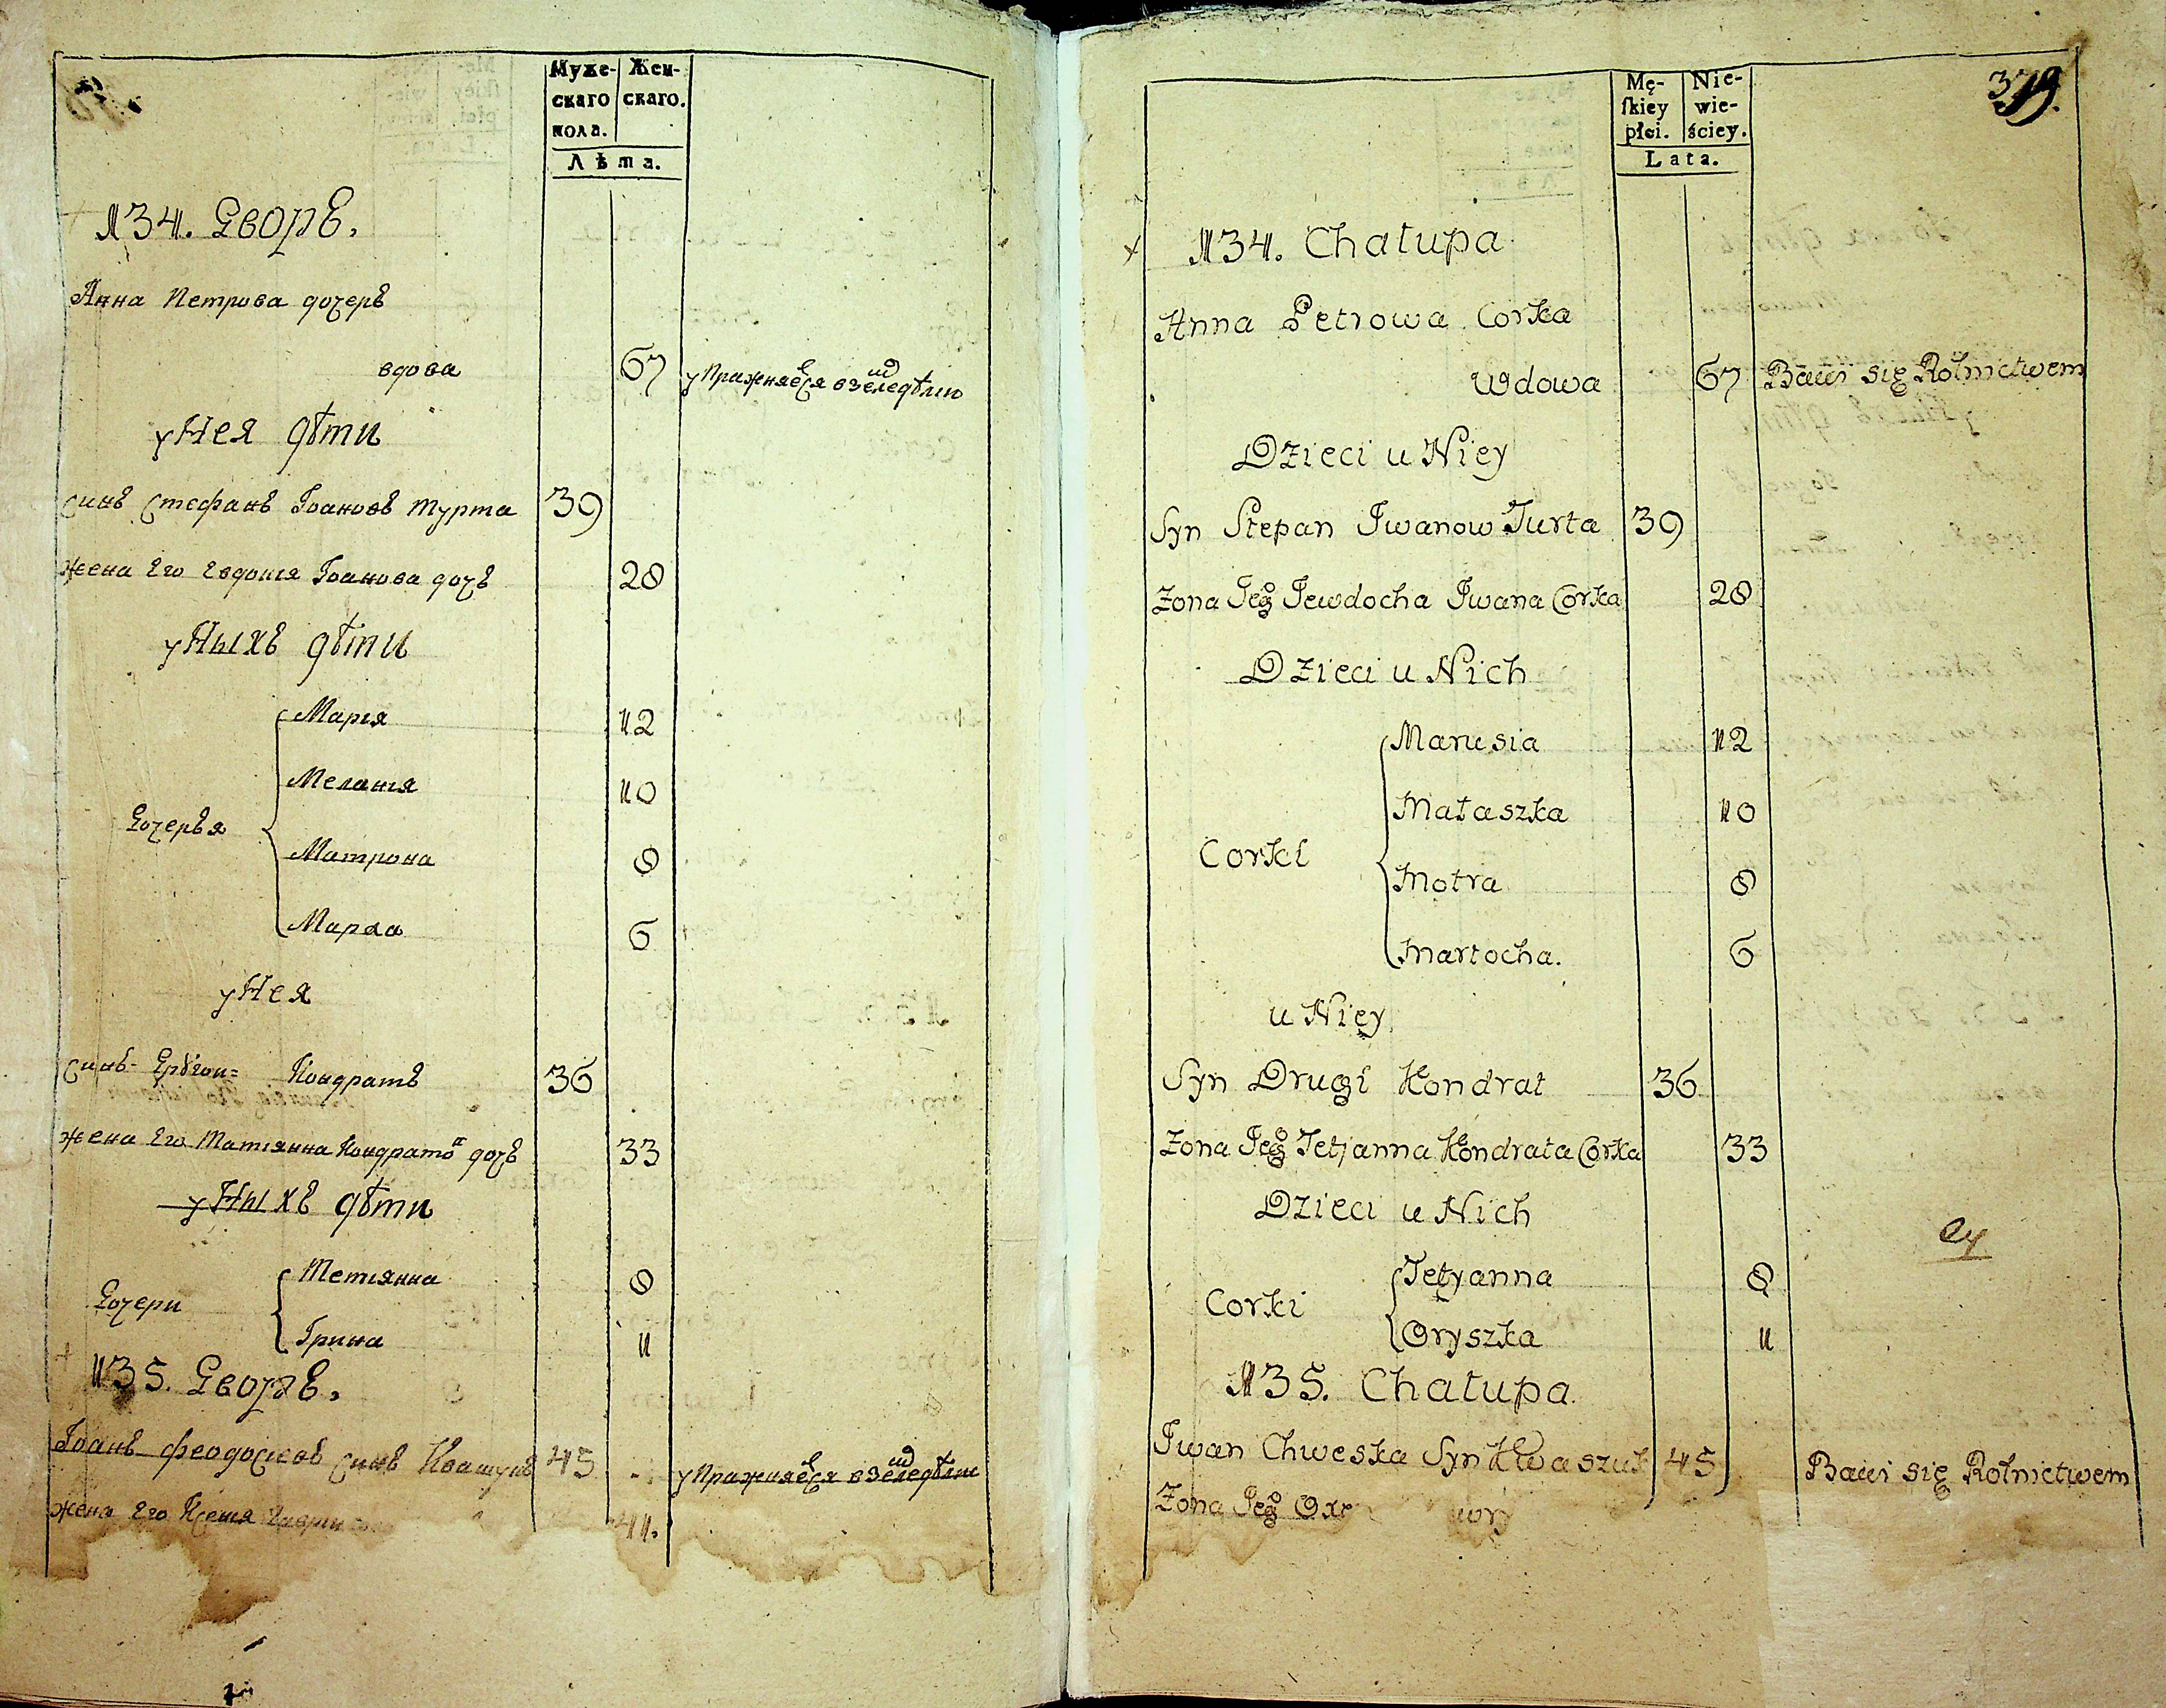 Муже-
скаго
пола.
Жен-
скаго.
Лѣта.
№34. Дворъ.
Анна Петрова дочеръ
вдова 67 упражняется в земледѣлїи
у Нея дѣти
синъ Стефанъ Іоановъ Турта 39
жена Его Евдокія Іоанова дочъ 28
у Ныхъ дѣти
Дочеръя
Марія 12
Меланія 10
Матрона 8
Марѳа 6
у Нея
синъ Другои= Кондратъ 36
жена Его Татіянна Кондрато дочъ 33
у Ныхъ дѣти
Дочери
Тетіянна 8
Ірина 1
№35. Дворъ.
Іоанъ Феодосіевъ синъ Квашукъ 45 упражняется в земледѣлїи
жена Его Ксенія 41.
379.
Mę-
ſkiey
płci.
Nie-
wie-
ściey.
Lata.
№34. Chałupa
Anna Petrowa Corka
Wdowa 67 Bawi się Rolnictwem
Dzieci u Niey
Syn Stepan Iwanow Turta 39
Zona Jego Jewdocha Iwana Corka 28
Dzieci u Nich
Corki
Marusia 12
Małaszka 10
Motra 8
Martocha. 6
u Niey
Syn Drugi Kondrat 36
Zona Jego Tetjanna Kondrata Corka 33
Dzieci u Nich
Corki
Tetyanna 8
Oryszka 1
№35. Chałupa.
Iwan Chweska Syn Kwaszuk 45 Bawi się Rolnictwem
Zona Jego